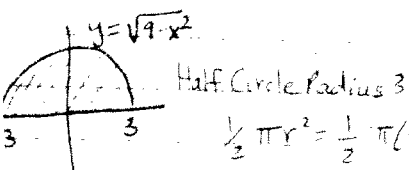 y = √9-x²
Half Circle Radius 3
3 3
½ πr² = ½ π(